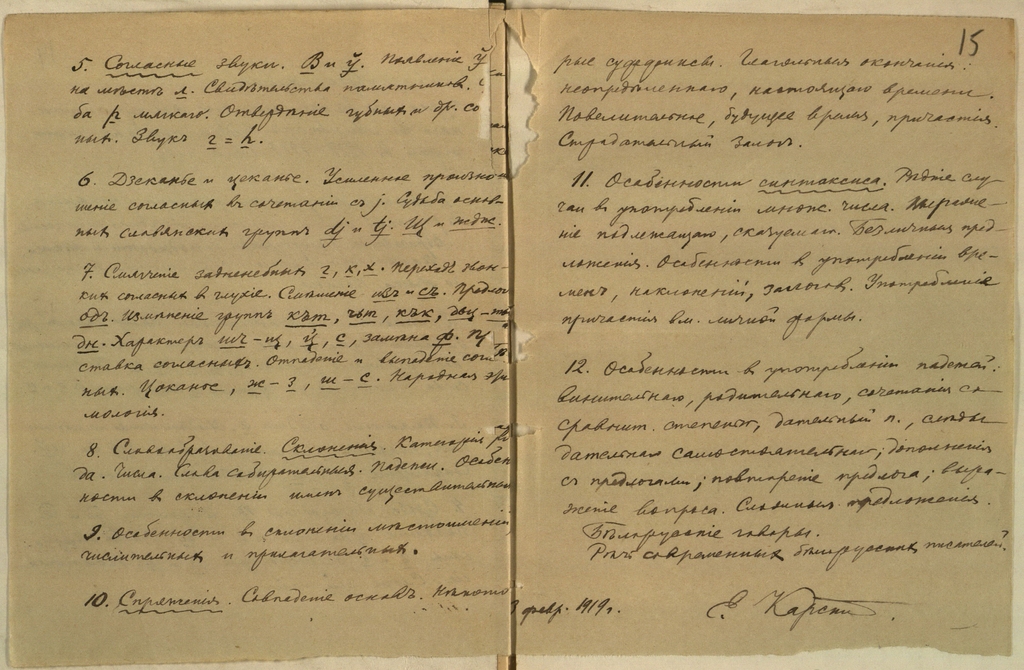 5. Согласные звуки. В и ў. Появленіе ў
на мѣстѣ л. Свидѣтельства памятников.
ба р мягкаго. Отвердѣніе губных и др. со
ных. Звукъ г = h.
6. Дзеканье и цеканье. Усиленное произно
шеніе согласных въ сочетаніи съ j. Судьба основ
ных славянских группъ dj и tj. Щ и ждж.
7. Смягченіе задненебных г, к, х. Переходъ звон-
ких согласных в глухіе. Смѣшеніе изъ и съ. Предлог
одъ. Измѣненіе группъ
дн. Характеръ шч – щ, й, с, замѣна ф. П
ставка согласныхъ. Отпаденіе и выпаденіе согл
ных. Цоканье, ж – з, ш – с. Народная эти
мологія.
8. Словообразованіе. Склоненія. Категорія Ро
да. Числа. Слова собирательныя. Падежи. Особен
ности в склоненіи именъ существительных
9. Особенности в склоненіи мѣстоименій
числительных и прилагательных.
10. Спряженія. Совпаденіе основъ. Нѣкото
15
рые суффиксы. Глагольныя окончанія:
неопредѣленнаго, настоящаго времени.
Повелительное, будущее время, причастія.
Страдательный залогъ.
11. Особенности синтаксиса. Рѣдкіе слу-
чаи в употребленіи множ. числа. Выраже-
ніе подлежащаго, сказуемаго. Безличныя пред-
ложенія. Особенности в употребленіи вре-
менъ, наклоненій, залогов. Употребленіе
причастія вм. личной формы.
12. Особенности в употребленіи падежей:
винительнаго, родительнаго, сочетанія со
сравнит. степенью, дательный п., слѣды
дательнаго самостоятельнаго; дополненія
съ предлогами; повтореніе предлога; выра-
женіе вопроса. Сложныя предложенія.
Бѣлорусскіе говоры.
современных бѣлорусских писателей.
февр. 1919 г.
Е. Карскій